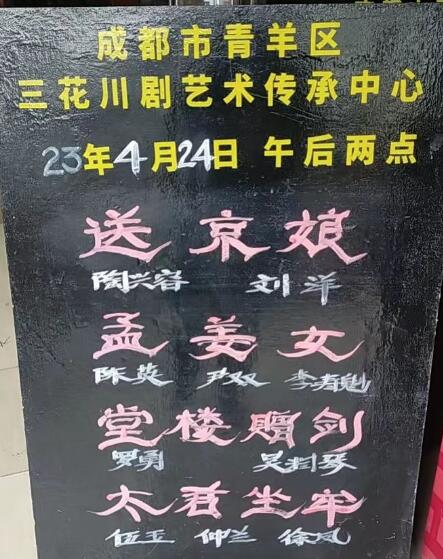 成都市青羊区
三花川剧艺术传承中心
23年4月24日 午后两点
送京娘
陶兴容 刘洋
孟姜女
陈英 尹双 李寿魁
堂楼赠剑
罗勇 吴
太君坐牢
伍玉 仲兰 徐凤